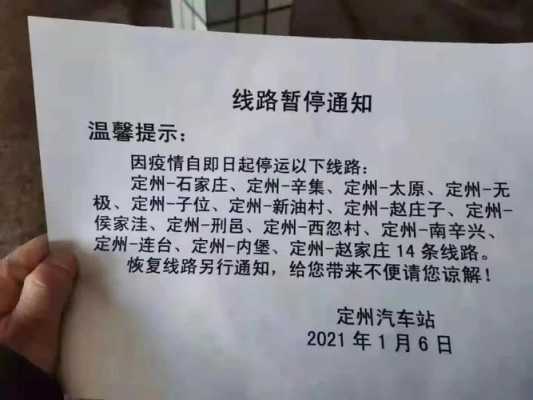 线路暂停通知
温馨提示：
因疫情自即日起停运以下线路：
定州-石家庄、定州-辛集、定州-太原、定州-无
极、定州-子位、定州-新油村、定州-赵庄子、定州-
侯家洼、定州-刑邑、定州-西忽村、定州-南辛兴、
定州-连台、定州-内堡、定州-赵家庄 14 条线路。
恢复线路另行通知，给您带来不便请您谅解！
定州汽车站
2021 年 1 月 6 日